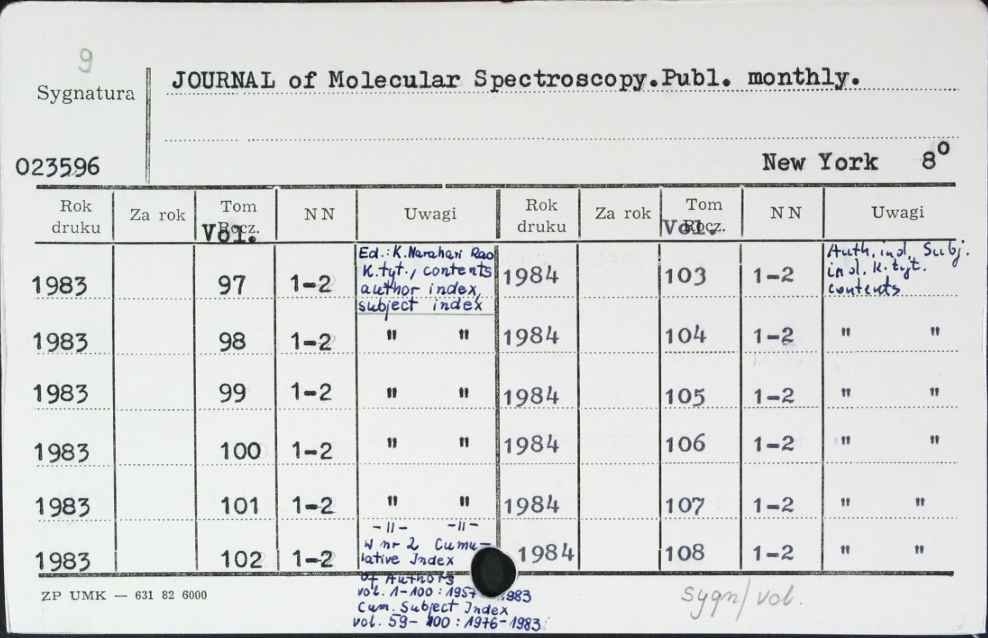 9
Sygnatura
JOURNAL of Molecular Spectroscopy.Publ. monthly.
023596
New York 8°
Rok druku Za rok Tom Rocz. Vol. NN Uwagi Rok druku Za rok Tom Rocz. Vol. NN Uwagi
1983 97 1-2 Ed.: K. Narahari Rao
K. tyt., contents
author index,
subject index
1984 103 1-2 Auth. ind. Subj.
ind. K. tyt.
contents
1983 98 1-2 " " 1984 104 1-2 " "
1983 99 1-2 " " 1984 105 1-2 " "
1983 100 1-2 " " 1984 106 1-2 " "
1983 101 1-2 " " 1984 107 1-2 " "
1983 102 1-2 -||- -||-
W nr 2 Cumu-
lative Index
of Authors
vol. 1-100: 1957 1983
Cum. Subject Index
vol. 59-100: 1976-1983
1984 108 1-2 " "
ZP UMK — 631 82 6000
sygn/vol.